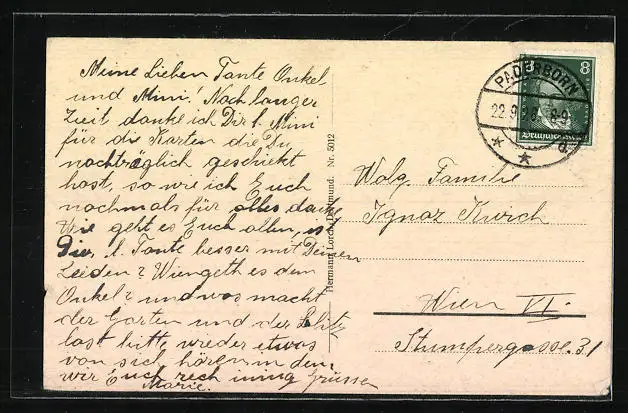 Meine Lieben Tante Onkel
und Mini! Nach langer
Zeit danke ich Dir l. Mini
für die Karten die Du
nachträglich geschickt
hast, so wie ich Euch
nochmals für alles danke
Wie geht es Euch allen, ist
Die, l. Tante besser mit Deinen
Leiden? Wie ngeth es dem
Onkel? und was macht
der Garten und der Blitz
last bitte wieder etwas
von sich hören in dem
wir Euch rech innig Grüssen
Marie.
Hermann Lorch, Dortmund. Nr. 5012
8
PADERBORN
22.9.
8-9
Deutsches
Wolg. Familie
Ignaz
Wien VI.
Stumpergasse. 31